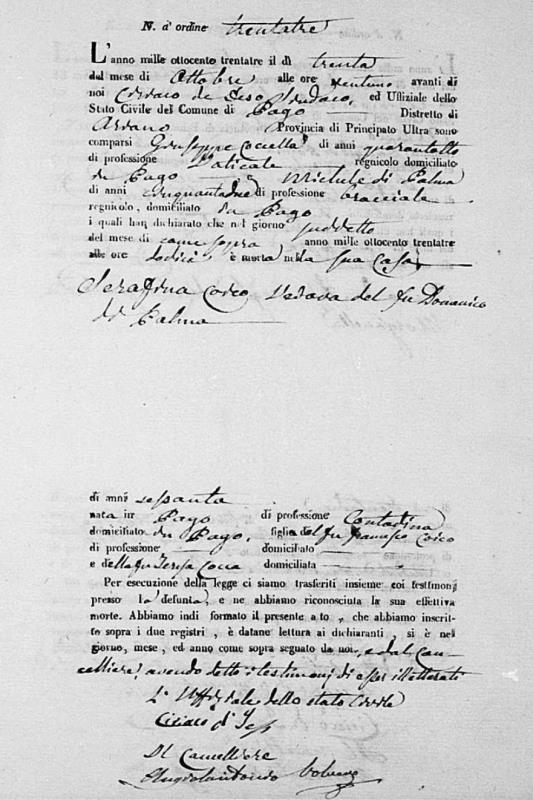 N. d'ordine trentatrè
L'anno mille ottocento trentatre il dì trenta
del mese di Ottobre alle ore ventuno avanti di
noi Ciriaco de Feso Sindaco, ed Uffiziale dello
Stato Civile del Comune di Pago Distretto di
Ariano Provincia di Principato Ultra sono
comparsi Giuseppe Coccella di anni quarantotto
di professione regnicolo domiciliato
in Pago e Michele di Palma
di anni cinquantadue di professione bracciale
regnicolo, domiciliato in Pago
i quali han dichiarato che nel giorno suddetto
del mese di come sopra anno mille ottocento trentatre
alle ore dodici è morta nella sua Casa
Serafina Coico Vedova del fu Domenico
di Palma
di anni sessanta
nata in Pago di professione Contadina
domiciliato in Pago, figlia del fu Francesco Coico
di professione domiciliato
e della fu Teresa domiciliata
Per esecuzione della legge ci siamo trasferiti insieme coi testimonj
presso la defunta, e ne abbiamo riconosciuta la sua effettiva
morte. Abbiamo indi formato il presente atto, che abbiamo inscrit-
to sopra i due registri, è datane lettura ai dichiaranti, si è nel
giorno, mese, ed anno come sopra segnato da noi, e dal Can-
celliere, avendo detto i testimonj di esser illetterati
L'Uffiziale dello stato Civile
Ciriaco d'
Il Cancelliere